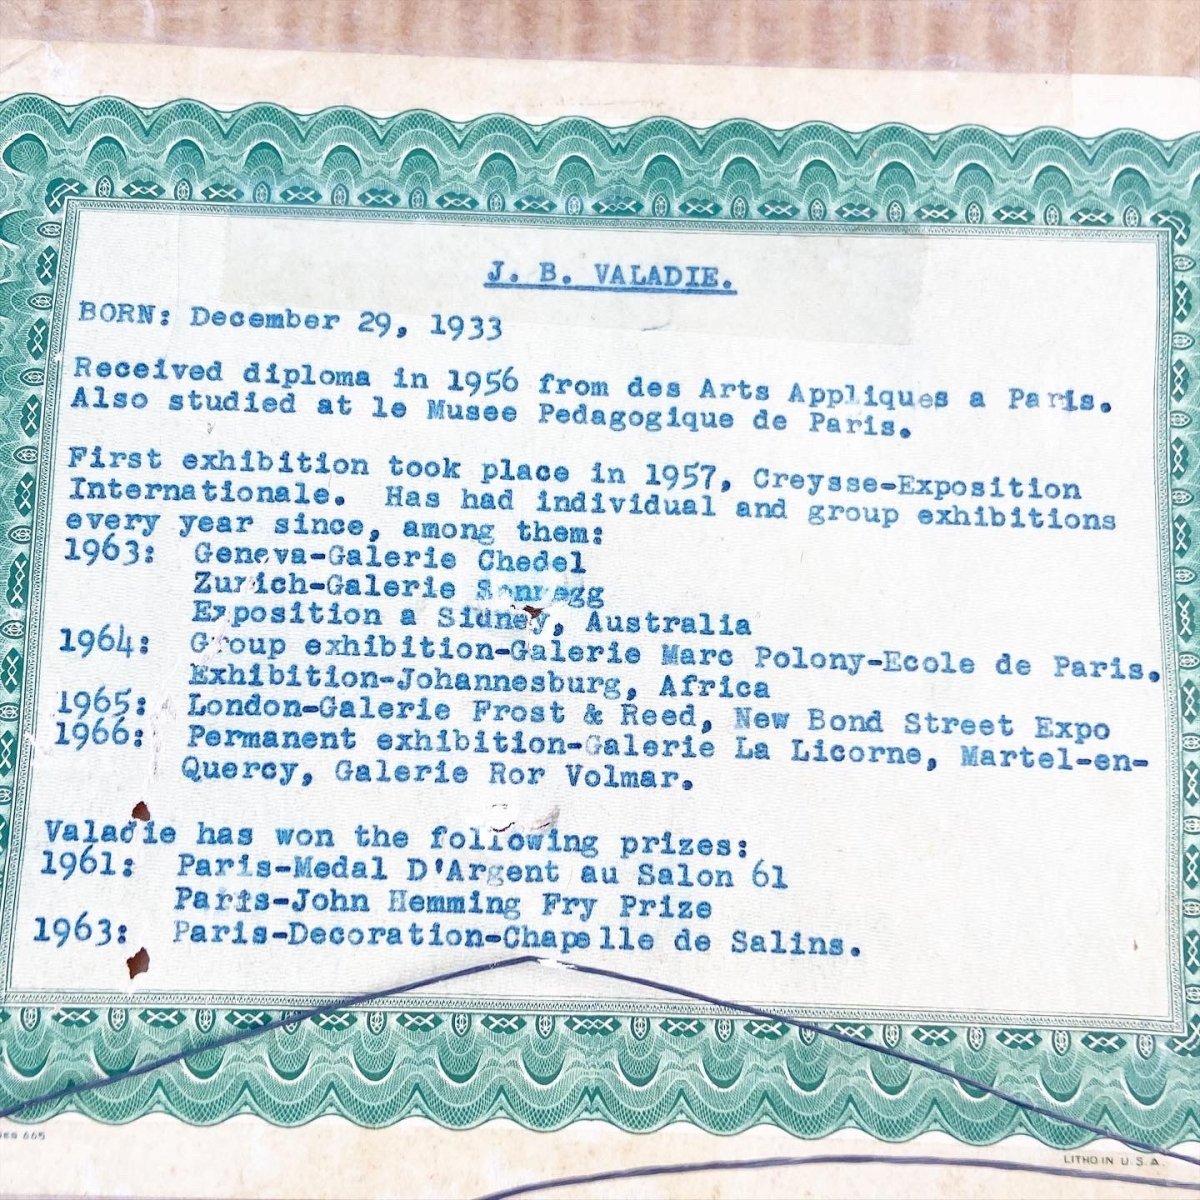 J. B. VALADIE.
BORN: December 29, 1933
Received diploma in 1956 from des Arts Appliques a Paris.
Also studied at le Musee Pedagogique de Paris.
First exhibition took place in 1957, Creysse-Exposition
Internationale. Has had individual and group exhibitions
every year since, among them:
1963: Geneva-Galerie Chedel
Zurich-Galerie
Exposition a Sidney, Australia
1964: Group exhibition-Galerie Marc Polony-Ecole de Paris.
Exhibition-Johannesburg, Africa
1965: London-Galerie Frost & Reed, New Bond Street Expo
1966: Permanent exhibition-Galerie La Licorne, Martel-en-
Quercy, Galerie Ror Volmar.
Valadie has won the following prizes:
1961: Paris-Medal D'Argent au Salon 61
Paris-John Hemming Fry Prize
1963: Paris-Decoration-Chapelle de Salins.
665
LITHO IN U.S.A.